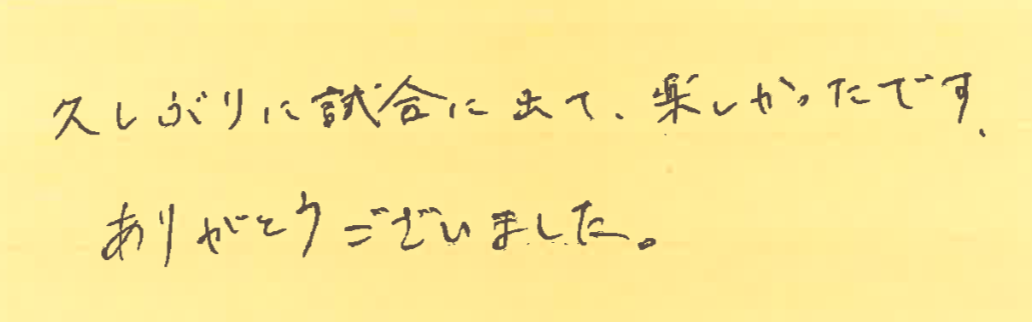 久しぶりに試合に出て、楽しかったです、
ありがとうございました。